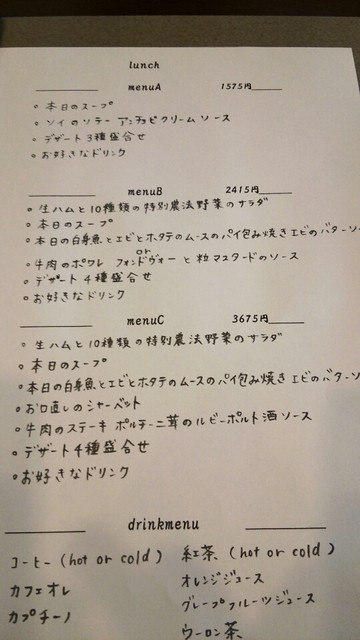 lunch
menuA 1575円
本日のスープ
ソイのソテー アンチョビクリームソース
デザート3種盛合せ
お好きなドリンク
menuB 2415円
生ハムと10種類の特別農法野菜のサラダ
本日のスープ
本日の白身魚とエビとホタテのムースのパイ包み焼きエビのバターソ
or
牛肉のポワレ フォンドヴォーと粒マスタードのソース
デザート4種盛合せ
お好きなドリンク
menuC 3675円
生ハムと10種類の特別農法野菜のサラダ
本日のスープ
本日の白身魚とエビとホタテのムースのパイ包み焼き エビのバターソ
お口直しのシャーベット
牛肉のステーキ ポルチーニ茸のルビーポルト酒ソース
デザート4種盛合せ
お好きなドリンク
drinkmenu
コーヒー (hot or cold) 紅茶 (hot or cold)
カフェオレ オレンジジュース
カプチーノ グレープフルーツジュース
ウーロン茶